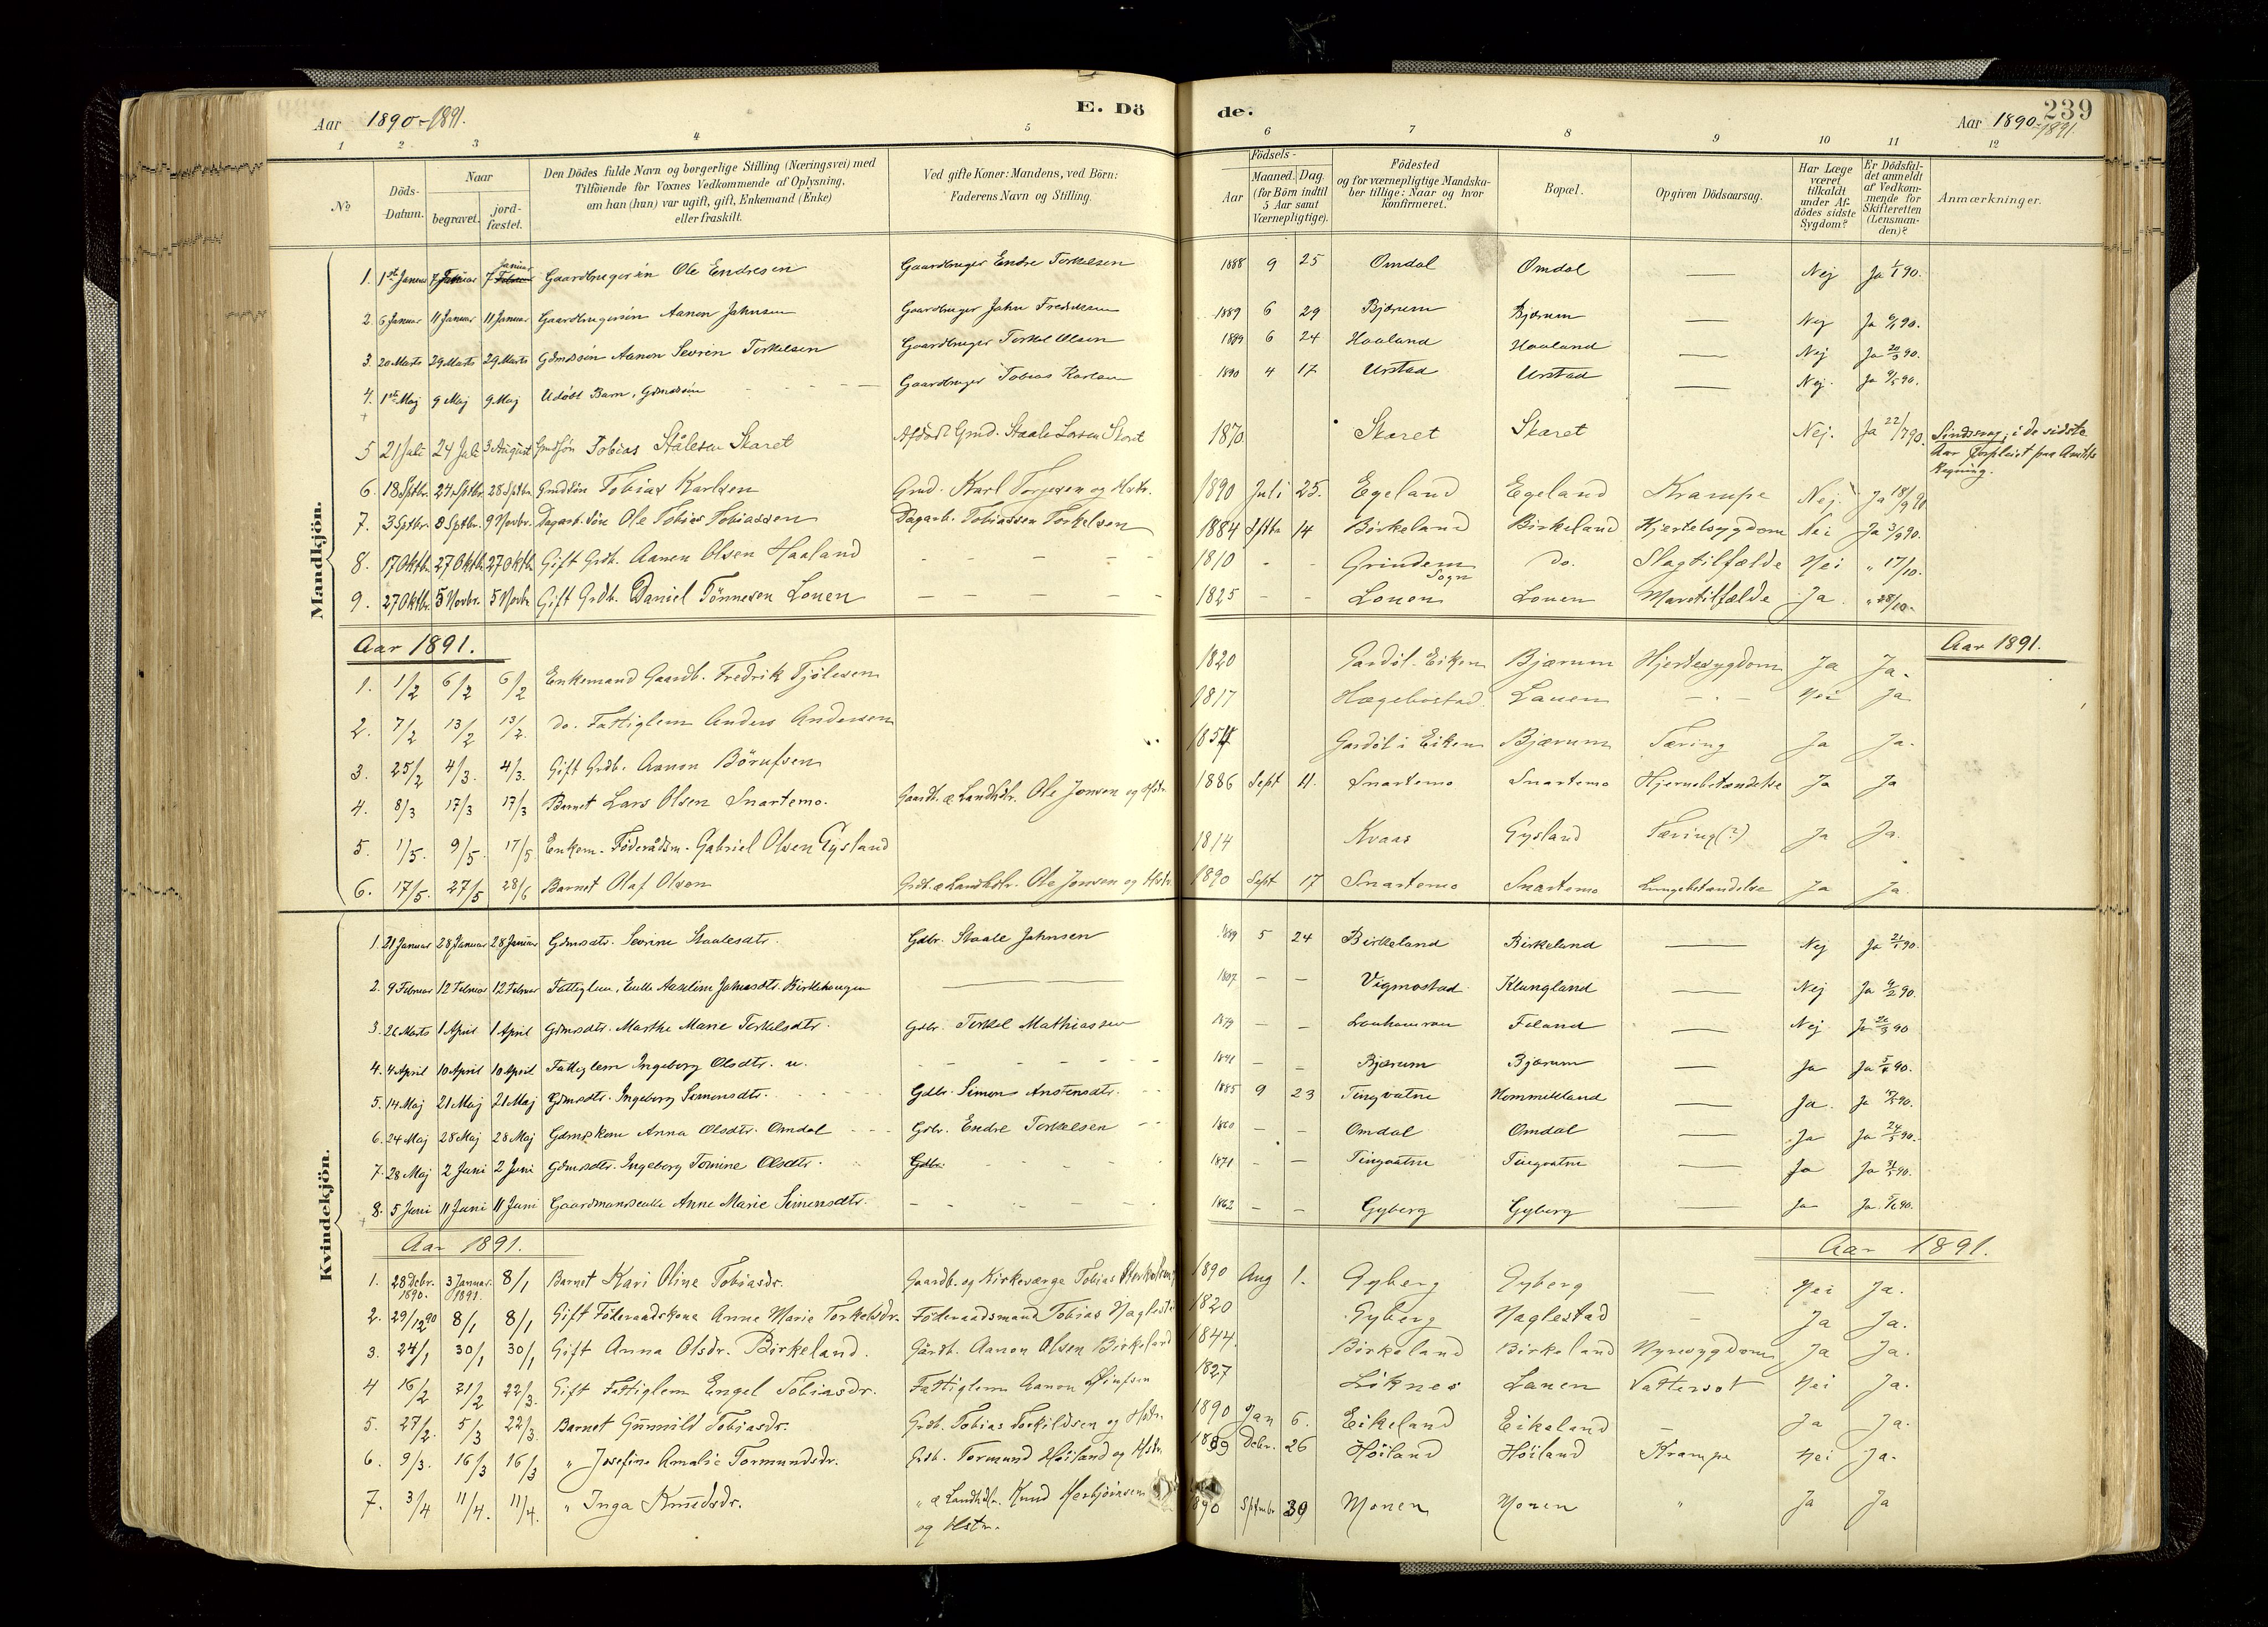 Aar 1890-1891. E. Dö de. Aar 1890-1891. 239
1 2 3 4 5 6 7 8 9 10 11 12
No
Döds-Datum.
Naar
begravet. jord-fæstet.
Den Dödes fulde Navn og borgerlige Stilling (Næringsvei) med
Tilföiende for Voxnes Vedkommende af Oplysning,
om han (hun) var ugift, gift, Enkemand (Enke)
eller fraskilt.
Ved gifte Koner: Mandens, ved Börn:
Faderens Navn og Stilling.
Födsels-
Aar Maaned. Dag.
(for Börn indtil
5 Aar samt
Værnepligtige).
Födested
og for værnepligtige Mandska-
ber tillige: Naar og hvor
konfirmeret.
Bopæl.
Opgiven Dödsaarsag.
Har Læge
været
tilkaldt
under Af-
dödes sidste
Sygdom?
Er Dödsfal-
det anmeldt
af Vedkom-
mende for
Skifteretten
(Lensman-
den)?
Anmærkninger.
Mandkjön.
1. 1ste Januar 7 Januar 7 Januar Gaardbrugersön Ole Endresen Gaardbruger Endre Torkelsen 1888 9 25 Omdal Omdal — Nej Ja 1/1 90.
2. 6 Januar 11 Januar 11 Januar Gaardbrugersön Aanon Jahnsen Gaardbruger Jahn Fredriksen 1889 6 29 Bjærum Bjærum — Nej Ja 6/1 90.
3. 20 Marts 29 Marts 29 Marts Gdmssön Aanon Sevrin Torkelsen Gaardbruger Torkel Olsen 1889 6 24 Haaland Haaland — Nej Ja 20/3 90.
4. 1ste Maj 9 Maj 9 Maj Udöbt Barn, Gdmssön Gaardbruger Tobias Karlsen 1890 4 17 Urstad Urstad — Nej. Ja 9/5 90.
5 21 Juli 24 Juli 3 August Gmdsön Tobias Stålesen Skaret Afdöde Gmd. Staale Larsen Skaret 1870 Skaret Skaret Nej. Ja 22/7 90. Sindssvag, i de sidste
Aar forpleiet paa Amtets
Regning.
6. 18 Sptbr. 24 Sptbr. 28 Sptbr. Gmdsön Tobias Karlsen Gmd. Karl Torjesen og Hstr. 1890 Juli 25. Egeland Egeland Krampe Nej. Ja 18/9 90
7. 3 Sptbr. 8 Sptbr. 9 Novbr. Dagarb. Sön Ole Tobias Tobiassen Dagarb. Tobiassen Torkelsen 1884 Sptbr 14 Birkeland Birkeland Hjertesygdom Nei Ja 3/9 90.
8. 17 Oktb. 27 Oktb. 27 Oktb. Gift Grdb. Aanen Olsen Haaland - - - - 1810 - - Grindem Sogn do. Slagtilfælde Nei " 17/10.
9. 27 Oktbr. 5 Novbr. 5 Novbr Gift Grdb. Daniel Tönnesen Lonen — — — — 1825 - - Lonen Lonen Mavetilfælde Ja " 28/10.
Aar 1891. Aar 1891.
1. 1/2 6/2 6/2 Enkemand Gaardb. Fredrik Tjölesen 1820 Gardöl. Eiken Bjærum Hjertesygdom Ja Ja.
2. 7/2 13/2 13/2. do. Fattiglem Anders Andersen 1817 Hægebostad Lauen - - - Nei Ja
3. 25/2 4/3. 4/3. Gift Grdb. Aanon Börufsen 1854 Gardöl i Eiken Bjærum Tæring Ja Ja.
4. 8/3 17/3 17/3 Barnet Lars Olsen Snartemo. Gaardb. & Landhdlr. Ole Jonsen og Hstr. 1886 Sept 11. Snartemo Snartemo Hjernebetændelse Ja Ja
5. 1/5. 9/5. 17/5 Enkem. Föderådsm. Gabriel Olsen Gysland 1814 Kvaas Gysland Tæring(?) Ja Ja.
6. 17/5. 27/5 28/6 Barnet Olaf Olsen Grdb. & Landhdlr. Ole Jonsen og Hstr. 1890 Sept 17 Snartemo Snartemo Lungebetændelse Ja Ja.
Kvindekjön.
1. 21 Januar 28 Januar 28 Januar Gdmsdtr. Sevrine Staalesdtr. Gdbr. Staale Jahnsen 1889 5 24 Birkeland Birkeland — Nej Ja 21/1 90.
2. 9 Februar 12 Februar 12 Februar Fattiglem, Enke Aaseline Jahnsdtr. Birkehaugen — 1807 — — Vigmostad Klungland — Nej Ja 9/2 90.
3. 26 Marts 1 April 1 April Gdmsdtr. Marthe Marie Torkelsdtr. Gdbr. Torkel Mathiassen 1879 — — Foland — Nej Ja 26/3 90
4. 4 April 10 April 10 April Fattiglem Ingeborg Olsdtr. u. - - - - 1841 — — Bjærum Bjærum — Ja Ja 5/4 90.
5. 14 Maj 21 Maj 21 Maj Gdmsdtr. Ingeborg Simonsdtr. Gdbr. Simon Anstensdtr. 1885 9 23 Tingvatne Hommelland — Ja. Ja 15/5 90.
6. 24 Maj 28 Maj 28 Maj Gdmskone Anna Olsdtr. Omdal Gdbr. Endre Torkelsen 1860 — — Omdal Omdal — Ja Ja 24/5 90.
7. 28 Maj 2 Juni 2 Juni Gdmsdtr. Ingeborg Tomine Olsdtr. Gdbr. 1871 - — Tingvatne Tingvatne — Ja Ja 31/5 90.
8. 5 Juni 11 Juni 11 Juni Gaardmandsenke Anne Marie Simensdtr. - - - - 1862 — — Gyberg Gyberg — Ja Ja 5/6 90.
Aar 1891. Aar 1891.
1. 28 Debr. 1890. 3 Januar. 1891. 8/1 Barnet Kari Oline Tobiasdr. Gaardb. og Kirkeværge Tobias 1890 Aug 1. Gyberg Gyberg — Nei Ja.
2. 29/12 90 8/1 8/1 Gift Föderaadskone Anne Marie Torkelsdr. Föderaadsmand Tobias Naglestad 1820 Gyberg Naglestad - Ja Ja.
3. 24/1 30/1 30/1 Gift Anna Olsdr. Birkeland. Gårdb. Aanon Olsen Birkeland 1844. Birkeland Birkeland Nyresygdom Ja Ja.
4 16/2 21/2 22/3. Gift Fattiglem Engel Tobiasdr. Fattiglem Aanon 1827 Löknes Lauen Vattersot Nei Ja.
5. 27/2. 5/3 22/3 Barnet Gunnild Tobiasdr. Grdb. Tobias Torkildsen og Hstr. 1890 Jan 6. Eikeland Eikeland — Ja Ja.
6. 9/3. 16/3 16/3 " Josefine Amalie Tormundsdr. Grdb. Tormund Höiland og Hstr. 1889 Debr. 26 Höiland Höiland Krampe Nei Ja.
7. 3/4 11/4. 11/4. " Inga Knudsdr. " & Landhdlr. Knud Herbjörnsen 1890 Sptmbr 30 Monen Monen " Ja Ja
og Hstr.